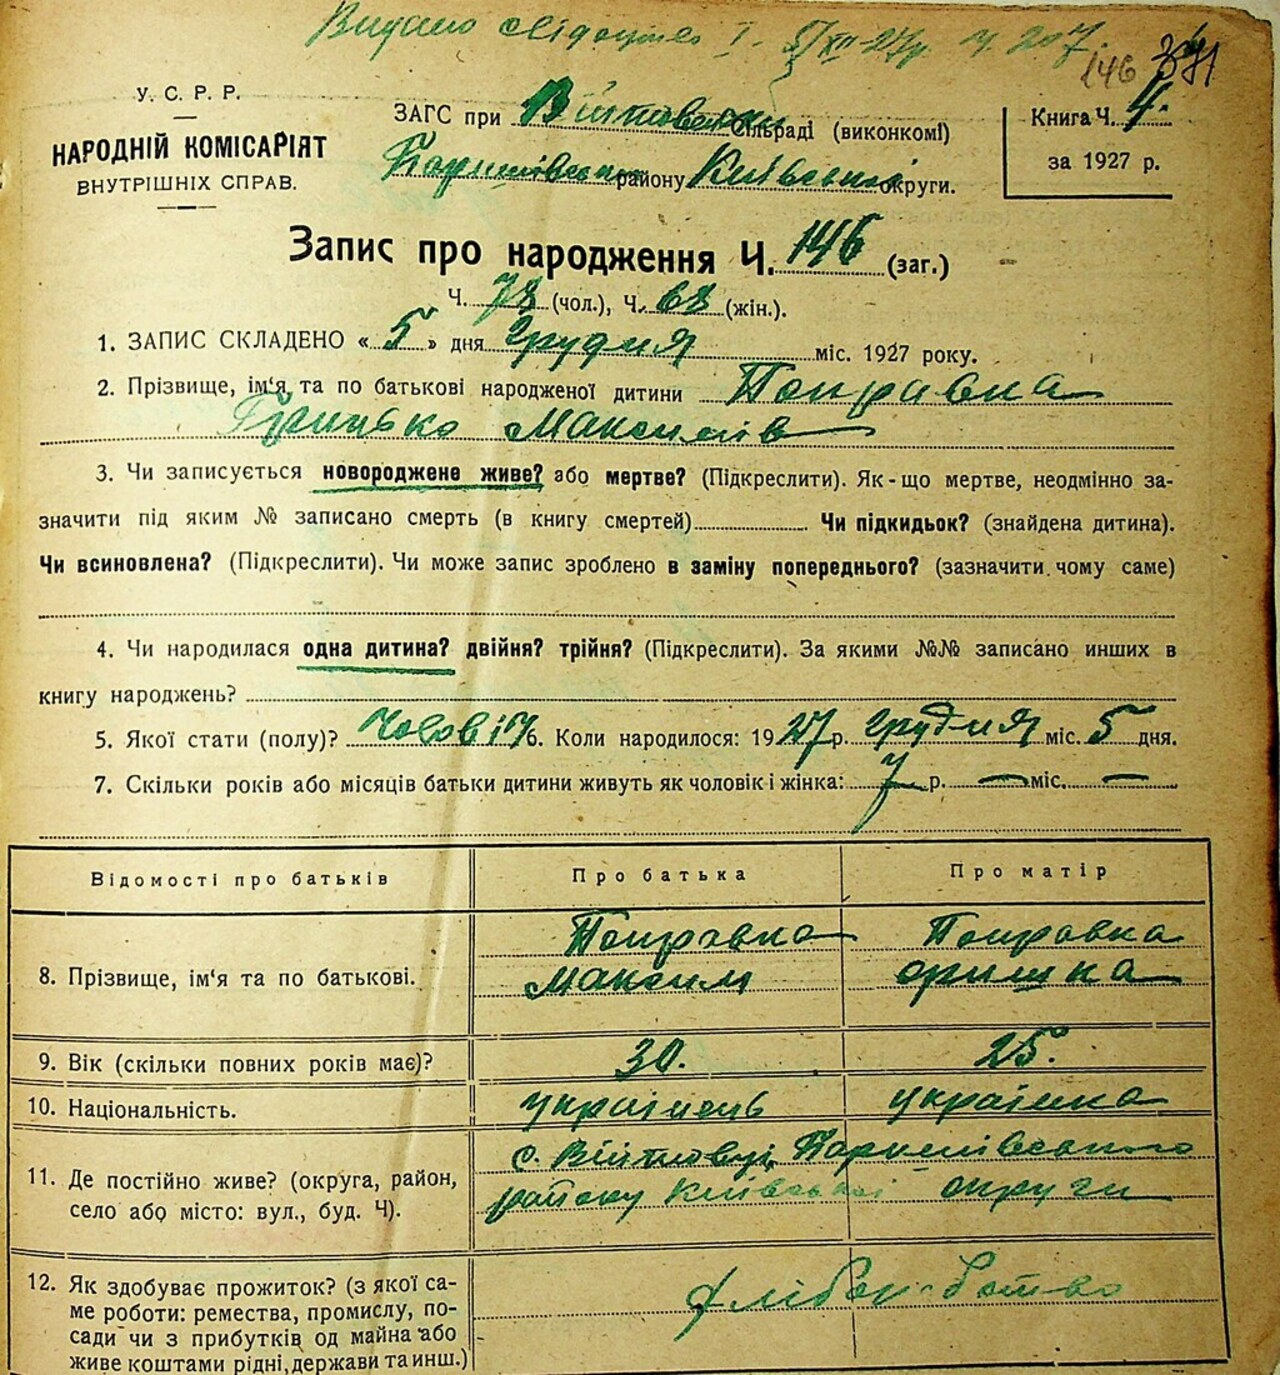 Видано свідоцтво І. 5/XII-27р. ч. 207.
146
У. С. Р. Р.
НАРОДНІЙ КОМІСАРІЯТ
ВНУТРІШНІХ СПРАВ.
ЗАГС при Війтовецькій Сільраді (виконкомі)
району Київської округи.
Книга Ч. 4.
за 1927 р.
Запис про народження Ч. 146 (заг.)
Ч. 78 (чол.), Ч. 68 (жін.).
1. ЗАПИС СКЛАДЕНО « 5 » дня грудня міс. 1927 року.
2. Прізвище, ім'я та по батькові народженої дитини Поправка
Грицько Максимів
3. Чи записується новороджене живе? або мертве? (Підкреслити). Як-що мертве, неодмінно за-
значити під яким № записано смерть (в книгу смертей) Чи підкидьок? (знайдена дитина).
Чи всиновлена? (Підкреслити). Чи може запис зроблено в заміну попереднього? (зазначити чому саме)
4. Чи народилася одна дитина? двійня? трійня? (Підкреслити). За якими №№ записано инших в
книгу народжень?
5. Якої стати (полу)? Чоловіч 6. Коли народилося: 1927 р. грудня міс. 5 дня.
7. Скільки років або місяців батьки дитини живуть як чоловік і жінка: 7 р. — міс. —
Відомості про батьків
Про батька
Про матір
8. Прізвище, ім'я та по батькові.
Поправка
Максим
Поправка
Оришка
9. Вік (скільки повних років має)?
30.
25.
10. Національність.
українець
українка
11. Де постійно живе? (округа, район,
село або місто: вул., буд. Ч).
с. Війтовці,
району Київської округи
12. Як здобуває прожиток? (з якої са-
ме роботи: ремества, промислу, по-
сади чи з прибутків од майна або
живе коштами рідні, держави та инш.)
Хлібороботво